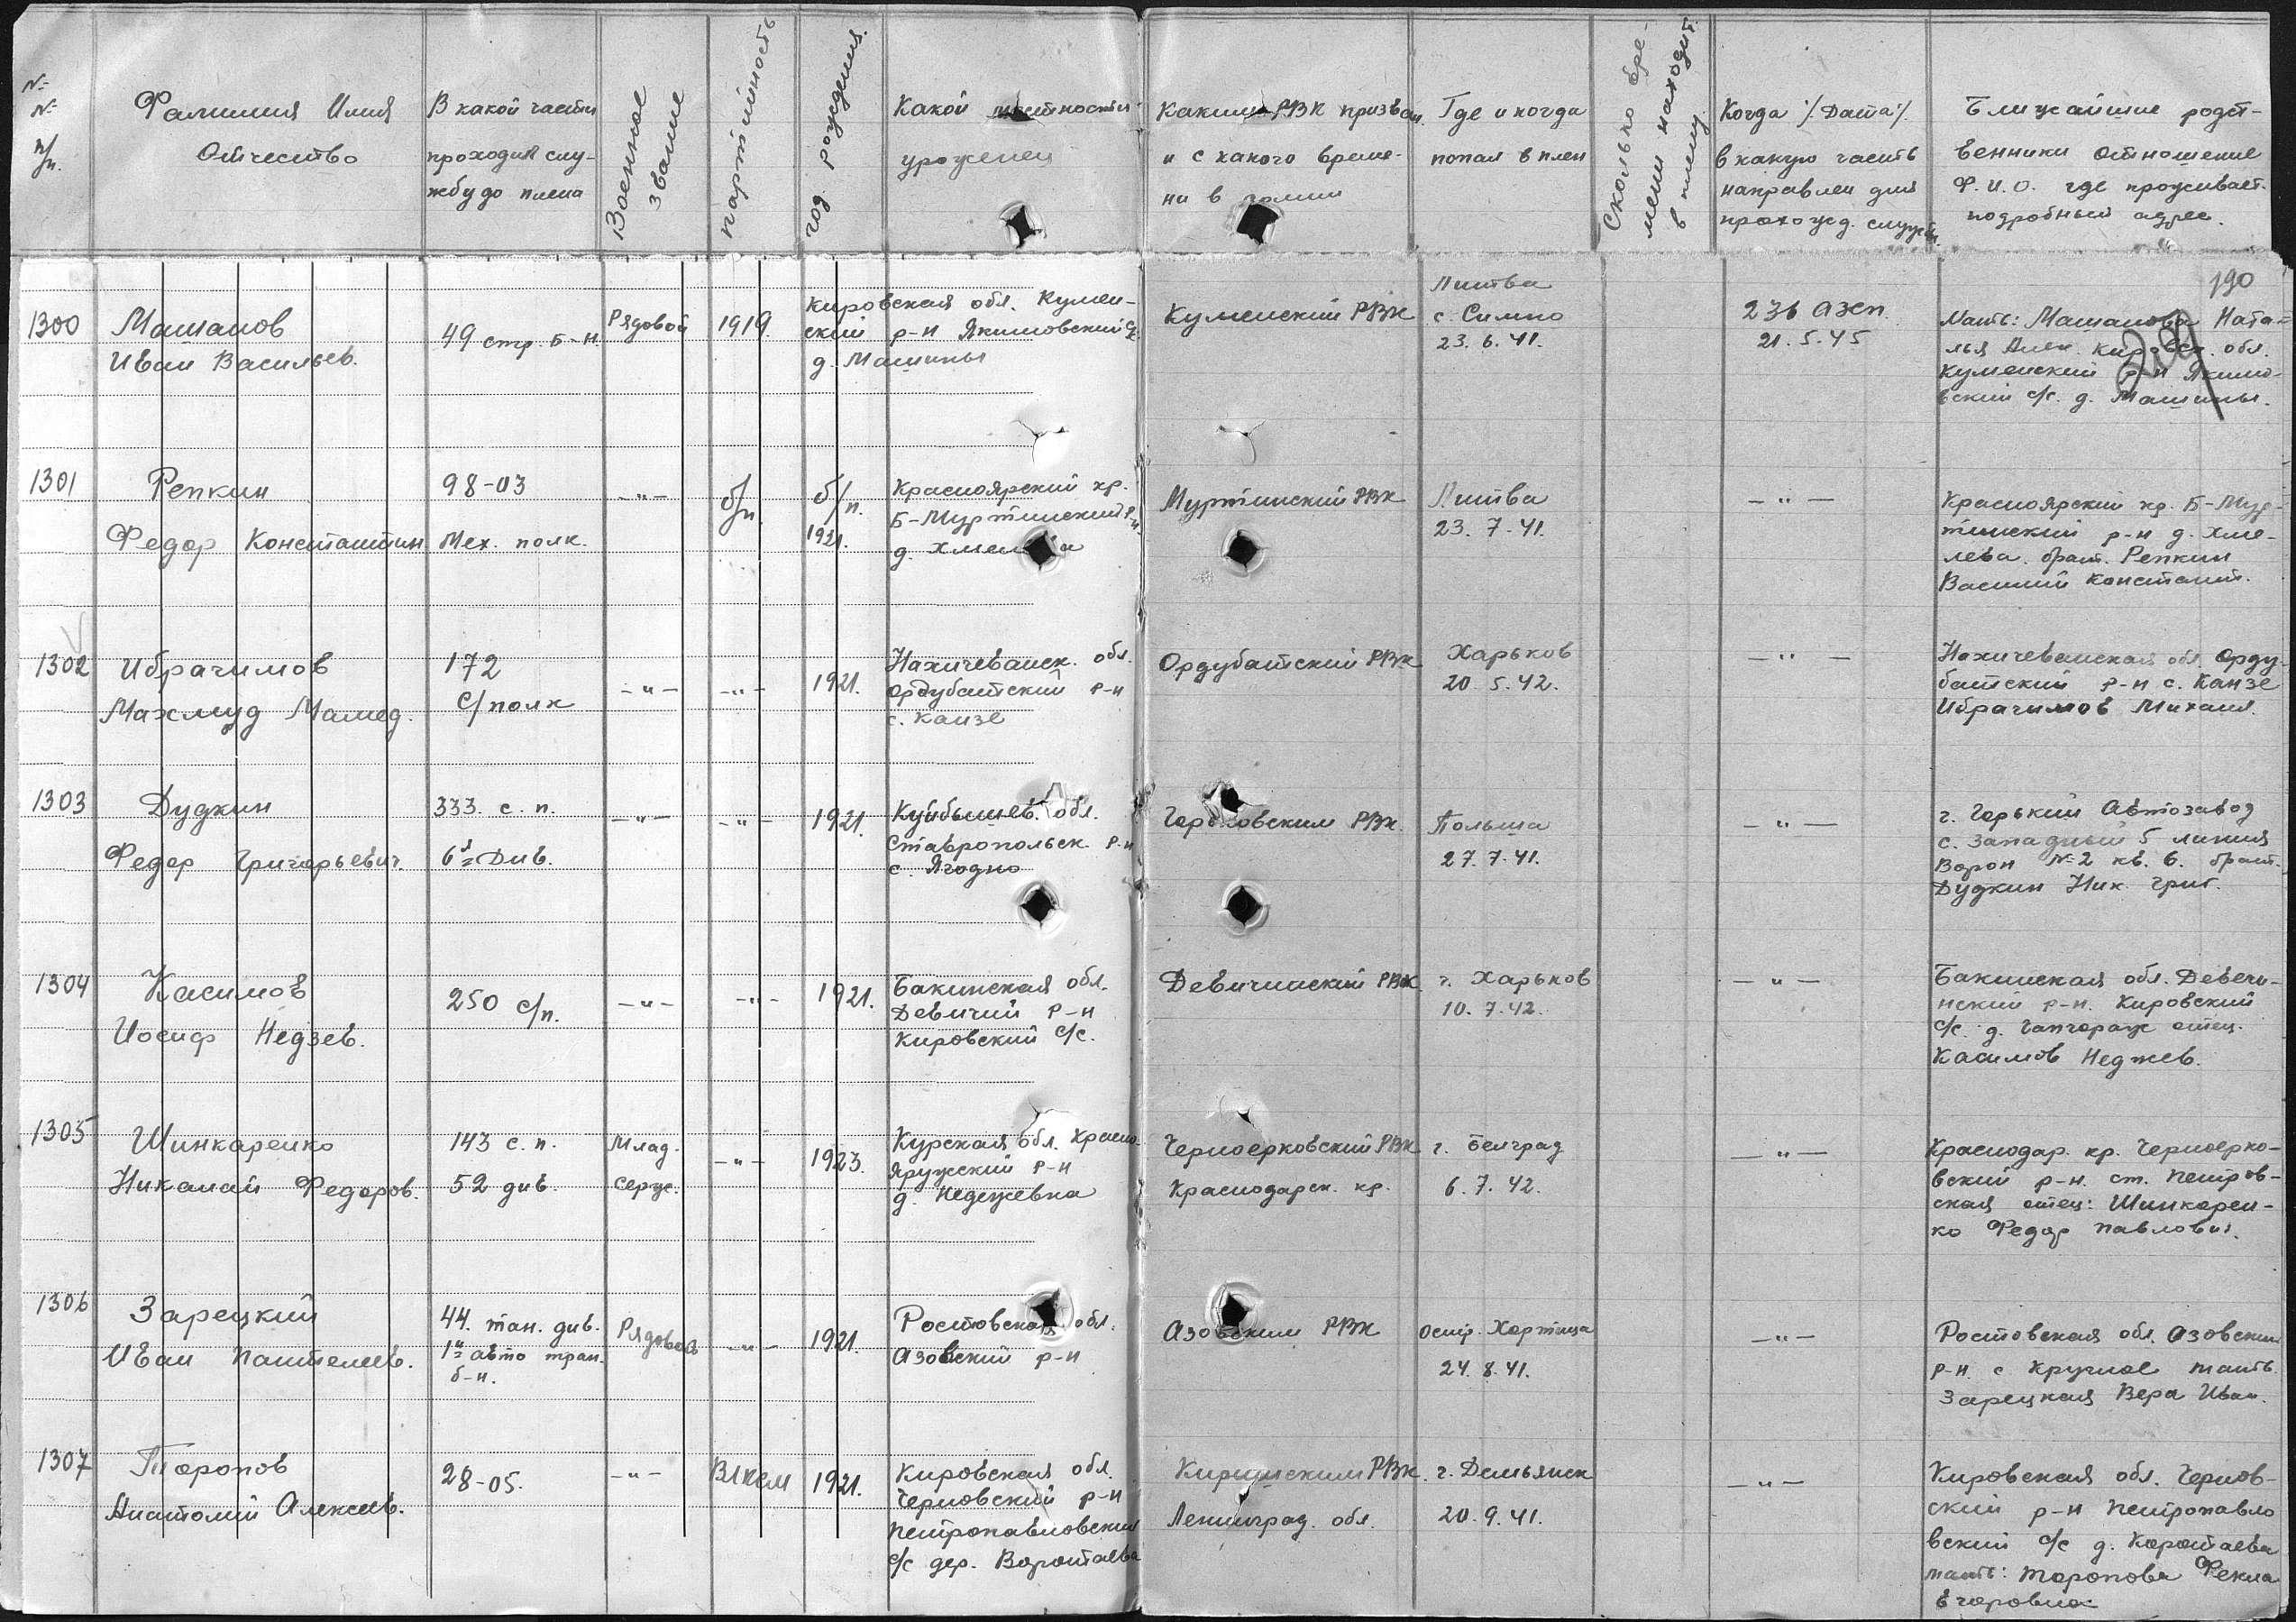 № № п/п.
Фамилия Имя
Отчество
В какой части
проходил слу-
жбу до плена
Военное
звание
партийность
год рождения.
Какой местности
уроженец
Каким РВК призван
и с какого време-
ни в армии
Где и когда
попал в плен
Сколько вре-
мени находит.
в плену
Когда /Дата/
в какую часть
направлен для
прохожд. службы.
Ближайшие родст-
венники отношение
Ф.И.О. где проживает.
подробный адрес.
190
1300
Машанов
Иван Васильев.
49 стр. б-н
Рядовой
1919.
Кировская обл. Кумен-
ский р-н Якимовский с/с
д. Машины
Куменский РВК
Литва
с. Симно
23.6.41.
236 азсп
21.5.45
Мать: Машанова Ната-
лья Алек. Кировск. обл.
Куменский р-н Якимо-
вский с/с. д. Машины.
1301
Репкин
Федор Константин
98-03
Мех. полк.
—"—
б/п.
б/п.
1921.
Красноярский кр.
Б-Муртинский р-н
д. Хмелева
Муртинский РВК
Литва
23.7.41.
—"—
Красноярский кр. Б-Мур-
тинский р-н д. Хме-
лева. брат. Репкин
Василий Констант.
1302
Ибрагимов
Махмуд Мамед.
172
с/полк
—"—
—"—
1921.
Нахичеванск. обл.
Ордубатский р-н
с. Канзе
Ордубатский РВК
Харьков
20.5.42.
—"—
Нахичеванская обл. Орду-
батский р-н с. Канзе
Ибрагимов Михаил.
1303
Дудкин
Федор Григорьевич.
333. с.п.
6я Див.
—"—
—"—
1921.
Куйбышев. обл.
Ставропольск. р-н
с. Ягодно
Горьковским РВК.
Польша
27.7.41.
—"—
г. Горький Автозавод
с. Западный 5 линия
Ворон №2 кв. 6. брат.
Дудкин Ник. Григ.
1304
Касимов
Иосиф Недзев.
250 с/п.
—"—
—"—
1921.
Бакинская обл.
Девичий р-н
Кировский с/с.
Девичинский РВК.
г. Харьков
10.7.42.
—"—
Бакинская обл. Девечи-
нский р-н. Кировский
с/с. д. отец.
Касимов Неджев.
1305
Шинкаренко
Николай Федоров.
143 с.п.
52 див.
Млад.
серж.
—"—
1923.
Курская обл. Красно-
яружский р-н
д. Надежевка
Черноерковский РВК
Краснодарск. кр.
г. Белград
6.7.42.
—"—
Краснодар. кр. Черноерко-
вский р-н. ст. Петров-
ская отец: Шинкарен-
ко Федор Павлович.
1306
Зарецкий
Иван Пантелеев.
44. тан. див.
1й авто тран.
б-н.
Рядовой
—"—
1921.
Ростовская обл.
Азовский р-н
Азовским РВК
Остр. Хортица
24.8.41.
—"—
Ростовская обл. Азовский
р-н. с Круглое мать
Зарецкая Вера Иван.
1307
Торопов
Анатолий Алексеев.
28-05.
—"—
ВЛКСМ
1921.
Кировская обл.
Черновский р-н
Петропавловский
с/с дер. Воронтаева
Киришским РВК.
Ленинград. обл.
г. Демьянск
20.9.41.
—"—
Кировская обл. Чернов-
ский р-н Петропавло
вский с/с д. Коротаева
мать: Торопова Фекла
Егоровна